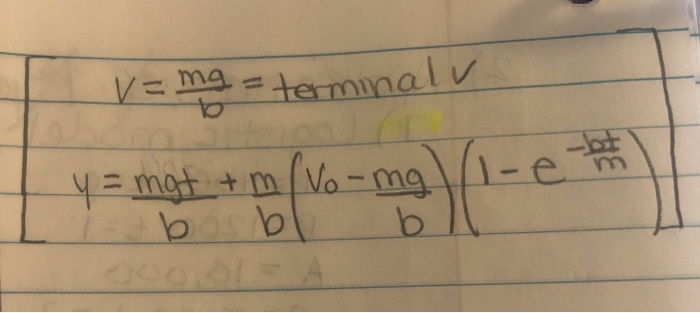 v = mg/b = terminal v
y = mgt/b + m/b (v₀ - mg/b)(1 - e^(-bt/m))
A = 10,000